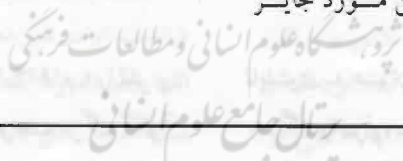 مورد جایز
پژوهشگاه علوم انسانی و مطالعات فرهنگی
رتال جامع علوم انسانی